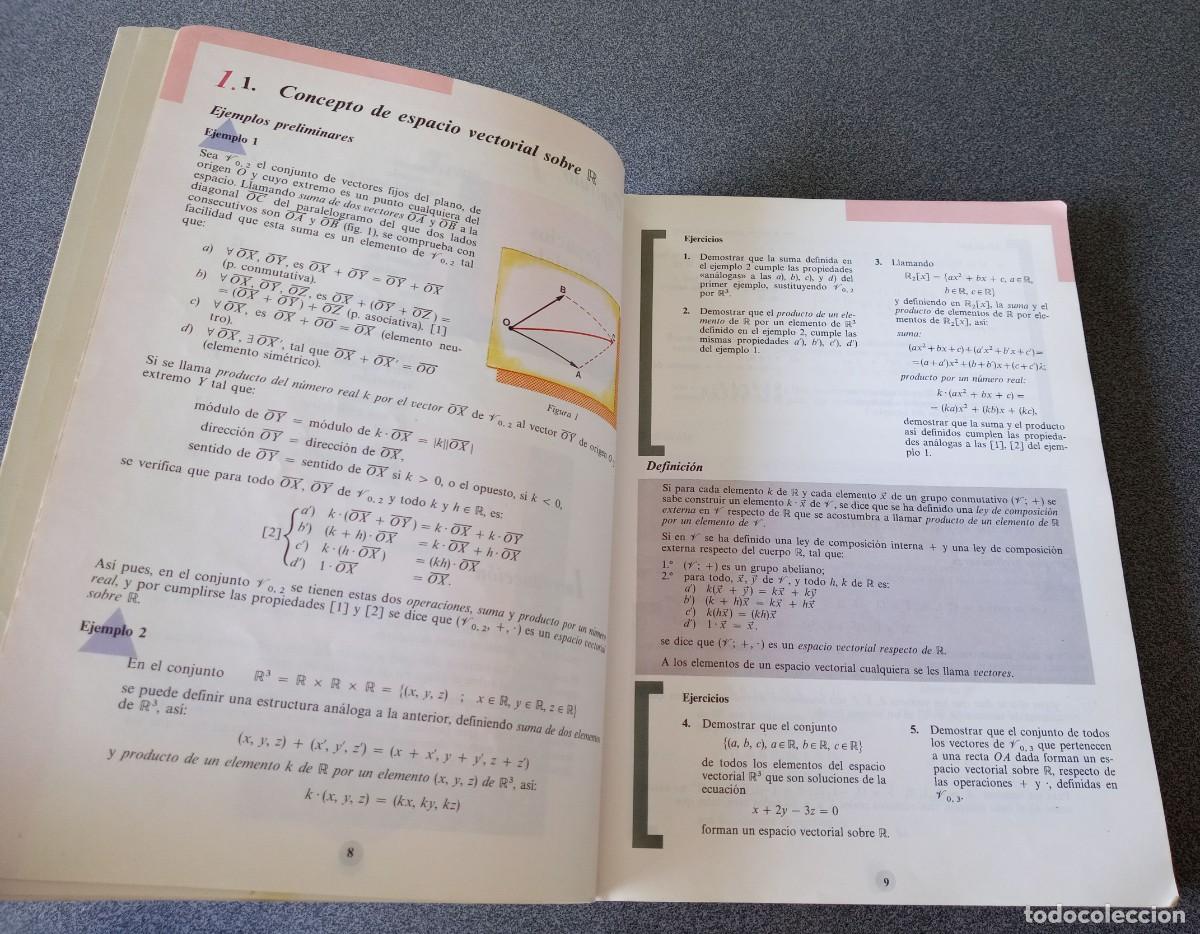 1.1. Concepto de espacio vectorial sobre ℝ
Ejemplos preliminares
Ejemplo 1
Sea 𝒱₀,₂ el conjunto de vectores fijos del plano, de
origen O y cuyo extremo es un punto cualquiera del
espacio. Llamando suma de dos vectores O̅A̅ y O̅B̅ a la
diagonal O̅C̅ del paralelogramo del que dos lados
consecutivos son O̅A̅ y O̅B̅ (fig. 1), se comprueba con
facilidad que esta suma es un elemento de 𝒱₀,₂ tal
que:
a) ∀ O̅X̅, O̅Y̅, es O̅X̅ + O̅Y̅ = O̅Y̅ + O̅X̅
(p. conmutativa).
b) ∀ O̅X̅, O̅Y̅, O̅Z̅, es O̅X̅ + (O̅Y̅ + O̅Z̅) =
= (O̅X̅ + O̅Y̅) + O̅Z̅ (p. asociativa). [1]
c) ∀ O̅X̅, es O̅X̅ + O̅O̅ = O̅X̅ (elemento neu-
tro).
d) ∀ O̅X̅, ∃ O̅X̅', tal que O̅X̅ + O̅X̅' = O̅O̅
(elemento simétrico).
B
O
A
Figura 1
Si se llama producto del número real k por el vector O̅X̅ de 𝒱₀,₂ al vector O̅Y̅ de origen O y
extremo Y tal que:
módulo de O̅Y̅ = módulo de k · O̅X̅ = |k||O̅X̅|
dirección O̅Y̅ = dirección de O̅X̅,
sentido de O̅Y̅ = sentido de O̅X̅ si k > 0, o el opuesto, si k < 0,
se verifica que para todo O̅X̅, O̅Y̅ de 𝒱₀,₂ y todo k y h ∈ ℝ, es:
[2] { a') k · (O̅X̅ + O̅Y̅) = k · O̅X̅ + k · O̅Y̅
b') (k + h) · O̅X̅ = k · O̅X̅ + h · O̅X̅
c') k · (h · O̅X̅) = (kh) · O̅X̅
d') 1 · O̅X̅ = O̅X̅.
Así pues, en el conjunto 𝒱₀,₂ se tienen estas dos operaciones, suma y producto por un número
real, y por cumplirse las propiedades [1] y [2] se dice que (𝒱₀,₂, +, ·) es un espacio vectorial
sobre ℝ.
Ejemplo 2
En el conjunto ℝ³ = ℝ × ℝ × ℝ = {(x, y, z) ; x ∈ ℝ, y ∈ ℝ, z ∈ ℝ}
se puede definir una estructura análoga a la anterior, definiendo suma de dos elementos
de ℝ³, así:
(x, y, z) + (x', y', z') = (x + x', y + y', z + z')
y producto de un elemento k de ℝ por un elemento (x, y, z) de ℝ³, así:
k · (x, y, z) = (kx, ky, kz)
8
Ejercicios
1. Demostrar que la suma definida en
el ejemplo 2 cumple las propiedades
«análogas» a las a), b), c), y d) del
primer ejemplo, sustituyendo 𝒱₀,₂
por ℝ³.
2. Demostrar que el producto de un ele-
mento de ℝ por un elemento de ℝ³
definido en el ejemplo 2, cumple las
mismas propiedades a'), b'), c'), d')
del ejemplo 1.
3. Llamando
ℝ₂[x] = {ax² + bx + c, a ∈ ℝ,
b ∈ ℝ, c ∈ ℝ}
y definiendo en ℝ₂[x], la suma y el
producto de elementos de ℝ por ele-
mentos de ℝ₂[x], así:
suma:
(ax² + bx + c) + (a'x² + b'x + c') =
= (a + a')x² + (b + b')x + (c + c');
producto por un número real:
k · (ax² + bx + c) =
= (ka)x² + (kb)x + (kc),
demostrar que la suma y el producto
así definidos cumplen las propieda-
des análogas a las [1], [2] del ejem-
plo 1.
Definición
Si para cada elemento k de ℝ y cada elemento x⃗ de un grupo conmutativo (𝒱; +) se
sabe construir un elemento k · x⃗ de 𝒱, se dice que se ha definido una ley de composición
externa en 𝒱 respecto de ℝ que se acostumbra a llamar producto de un elemento de ℝ
por un elemento de 𝒱.
Si en 𝒱 se ha definido una ley de composición interna + y una ley de composición
externa respecto del cuerpo ℝ, tal que:
1.º (𝒱; +) es un grupo abeliano;
2.º para todo, x⃗, y⃗ de 𝒱, y todo h, k de ℝ es:
a') k(x⃗ + y⃗) = kx⃗ + ky⃗
b') (k + h)x⃗ = kx⃗ + hx⃗
c') k(hx⃗) = (kh)x⃗
d') 1 · x⃗ = x⃗.
se dice que (𝒱; +, ·) es un espacio vectorial respecto de ℝ.
A los elementos de un espacio vectorial cualquiera se les llama vectores.
Ejercicios
4. Demostrar que el conjunto
{(a, b, c), a ∈ ℝ, b ∈ ℝ, c ∈ ℝ}
de todos los elementos del espacio
vectorial ℝ³ que son soluciones de la
ecuación
x + 2y − 3z = 0
forman un espacio vectorial sobre ℝ.
5. Demostrar que el conjunto de todos
los vectores de 𝒱₀,₃ que pertenecen
a una recta OA dada forman un es-
pacio vectorial sobre ℝ, respecto de
las operaciones + y ·, definidas en
𝒱₀,₃.
9
todocoleccion